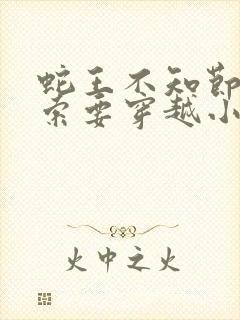 蛇王不知节
索要穿越小
火中之火